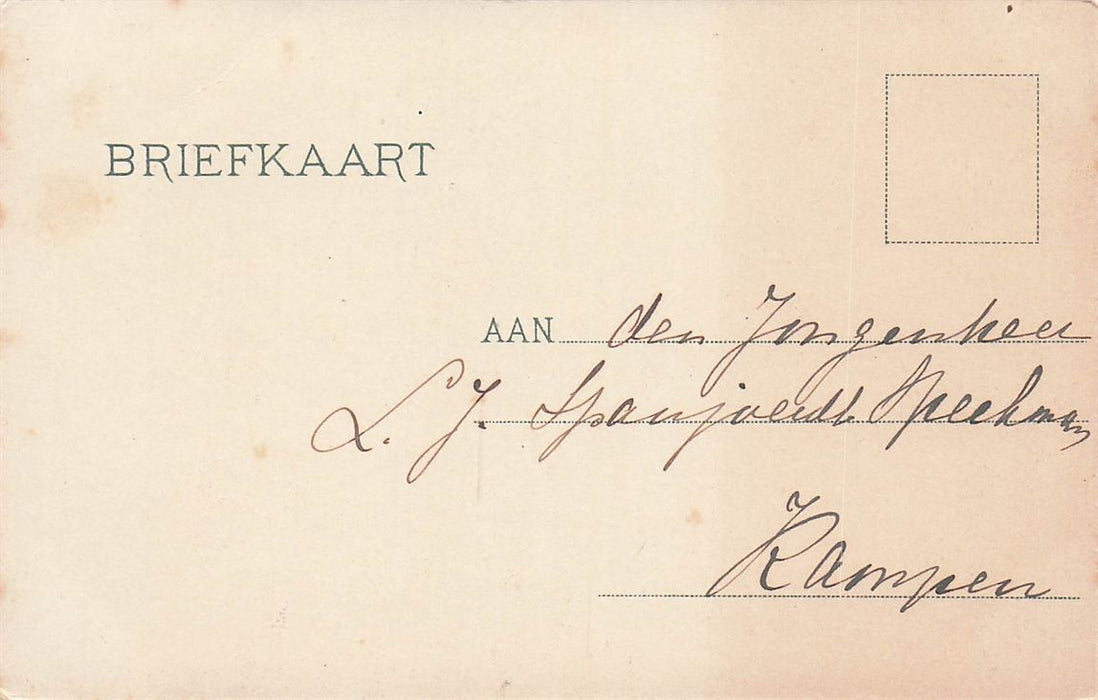 BRIEFKAART
AAN den Jongenheer
L. J. Spanjaerdt Speckman
Kampen